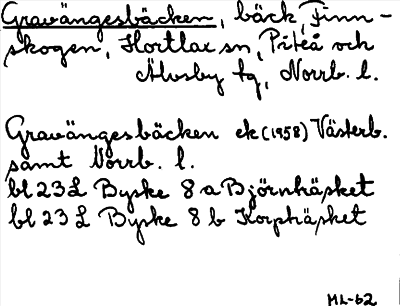 Gravängesbäcken, bäck, Finn-
skogen, Hortlax sn, Piteå och
Älvsby tg, Norrb. l.
Gravängesbäcken ek (1958) Västerb.
samt Norrb. l.
bl 23 L Byske 8 a Björnhäsket
bl 23 L Byske 8 b Korphäsket
ML-62